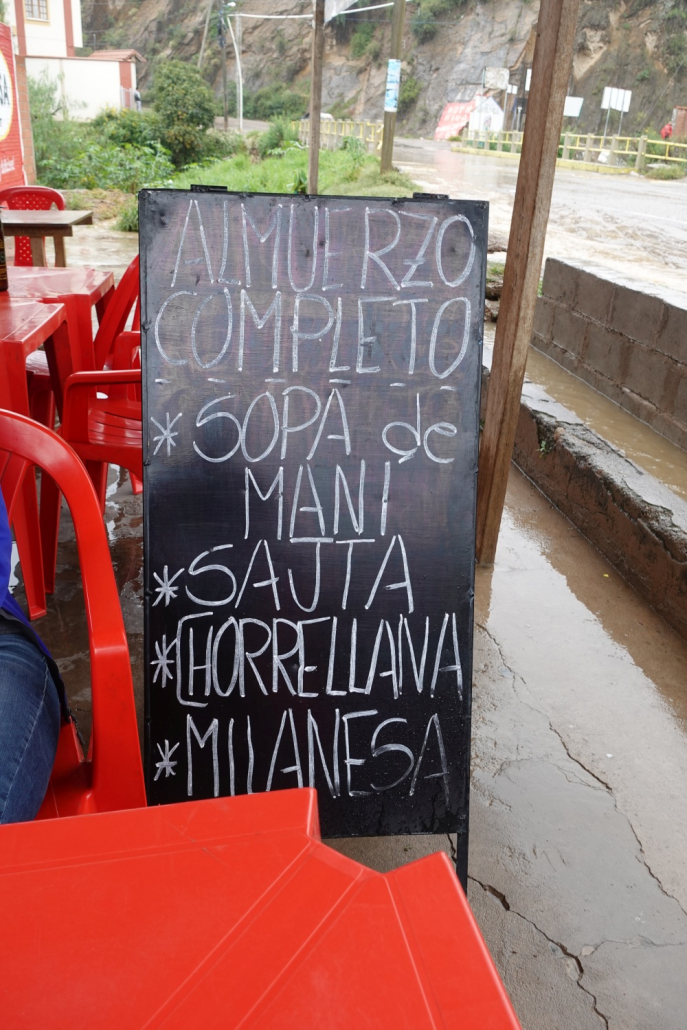 ALMUERZO
COMPLETO
* SOPA de
MANI
* SAJTA
* CHORRELLANA
* MILANESA